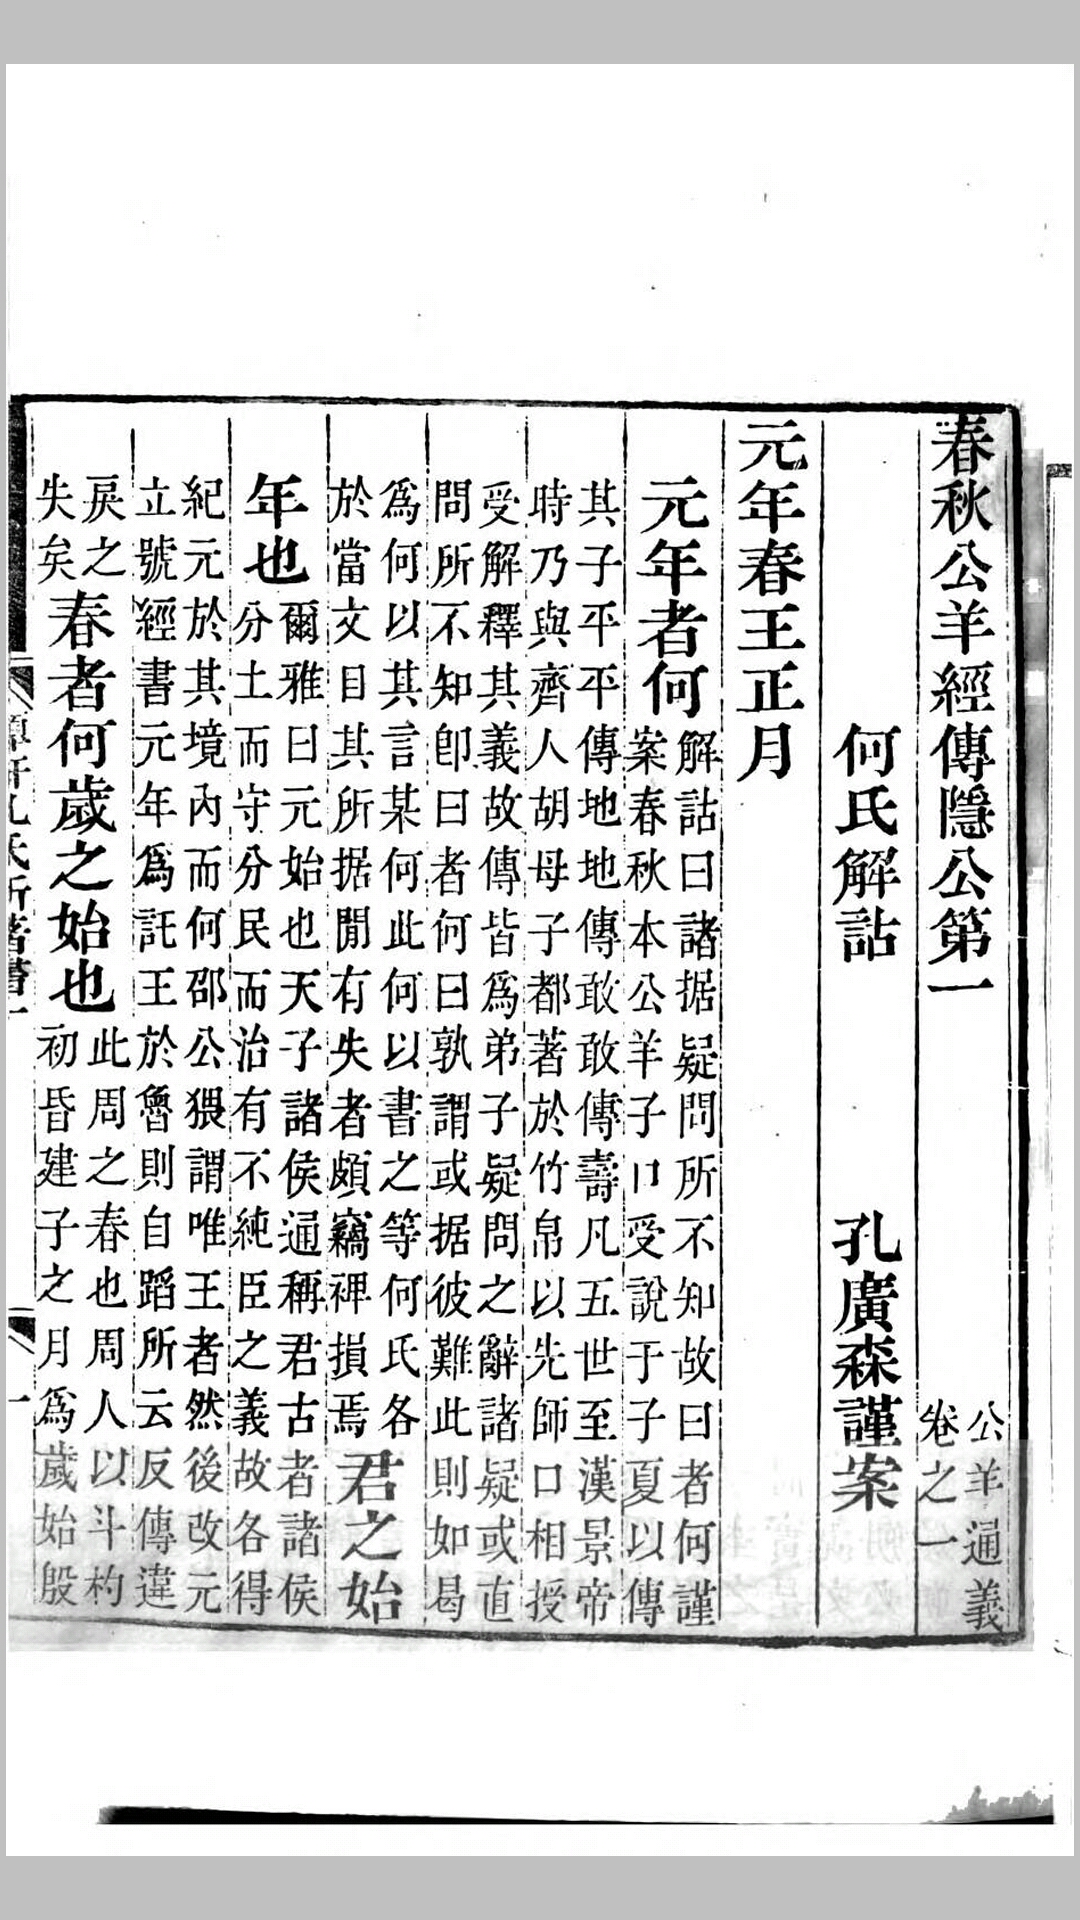 春秋公羊經傳隱公第一
公羊通義
卷之一
何氏解詁 孔廣森謹案
元年春王正月
元年者何
解詁曰諸据疑問所不知故曰者何謹
案春秋本公羊子口受說于子夏以傳
其子平平傳地地傳敢敢傳壽凡五世至漢景帝
時乃與齊人胡母子都著於竹帛以先師口相授
受解釋其義故傳皆爲弟子疑問之辭諸疑或直
問所不知卽曰者何曰孰謂或据彼難此則如曷
爲何以其言某何此何以書之等何氏各
於當文目其所据閒有失者頗竊裨損焉
君之始
年也
爾雅曰元始也天子諸侯通稱君古者諸侯
分土而守分民而治有不純臣之義故各得
紀元於其境內而何邵公猥謂唯王者然後改元
立號經書元年爲託王於魯則自蹈所云反傳違
戾之
失矣
春者何歲之始也
此周之春也周人以斗杓
初昏建子之月爲歲始殷